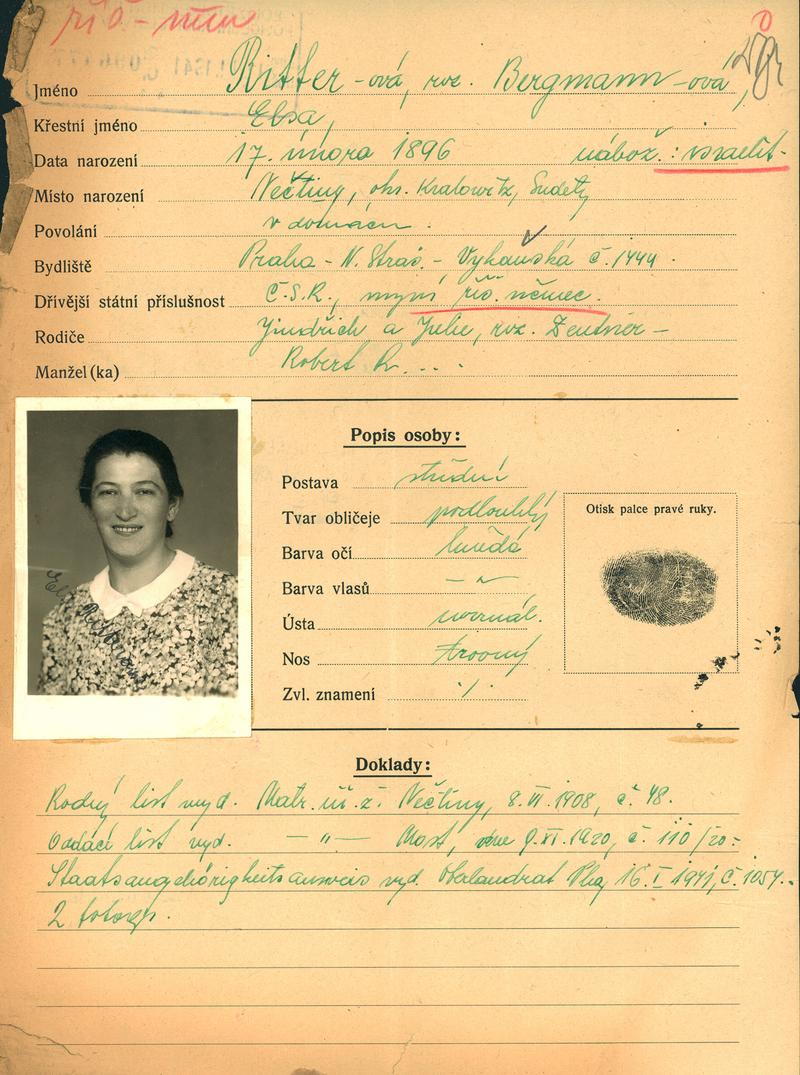 říš-něm
Jméno Ritter-ová, roz. Bergmann-ová,
Křestní jméno Elsa,
Data narození 17. února 1896 nábož.: israelit.
Místo narození Nečtiny, okr. Kralowitz, Sudety
Povolání v domácn.
Bydliště Praha - N. Straš. - Vykáňská č. 1444.
Dřívější státní příslušnost Č.S.R., nyní říš. němec.
Rodiče Jindřich a Julie, roz. Zentner-
Manžel(ka) Robert R....
Popis osoby:
Postava střední
Tvar obličeje podlouhlý
Barva očí hnědá
Barva vlasů -"-
Ústa normál.
Nos rovný
Zvl. znamení ./.
Otisk palce pravé ruky.
Doklady:
Rodný list vyd. Matr. úř. ž. Nečtiny, 8. VI. 1908, č. 48.
Oddací list vyd. -"- Most, dne 9. XI. 1920, č. 110/20.
Staatsangehörigkeitsausweis vyd. Oberlandrat Prag, 16. I. 1941, č. 1054.
2 fotogr.